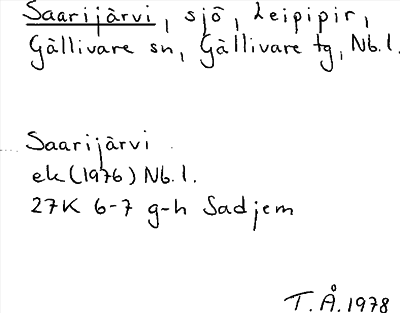 Saarijärvi, sjö, Leipipir,
Gällivare sn, Gällivare tg, Nb.l.
Saarijärvi
ek (1976) Nb.l.
27K 6-7 g-h Sadjem
T.Å. 1978